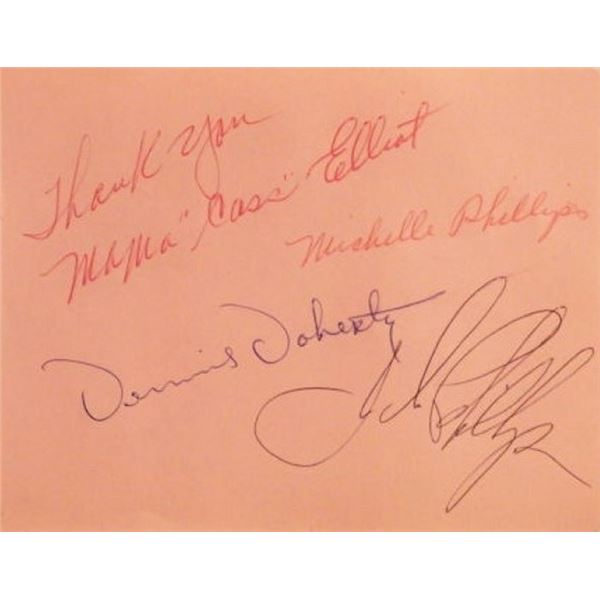 Thank You
"Mama" Cass Elliot
Michelle Phillips
Dennis Doherty
John Phillips